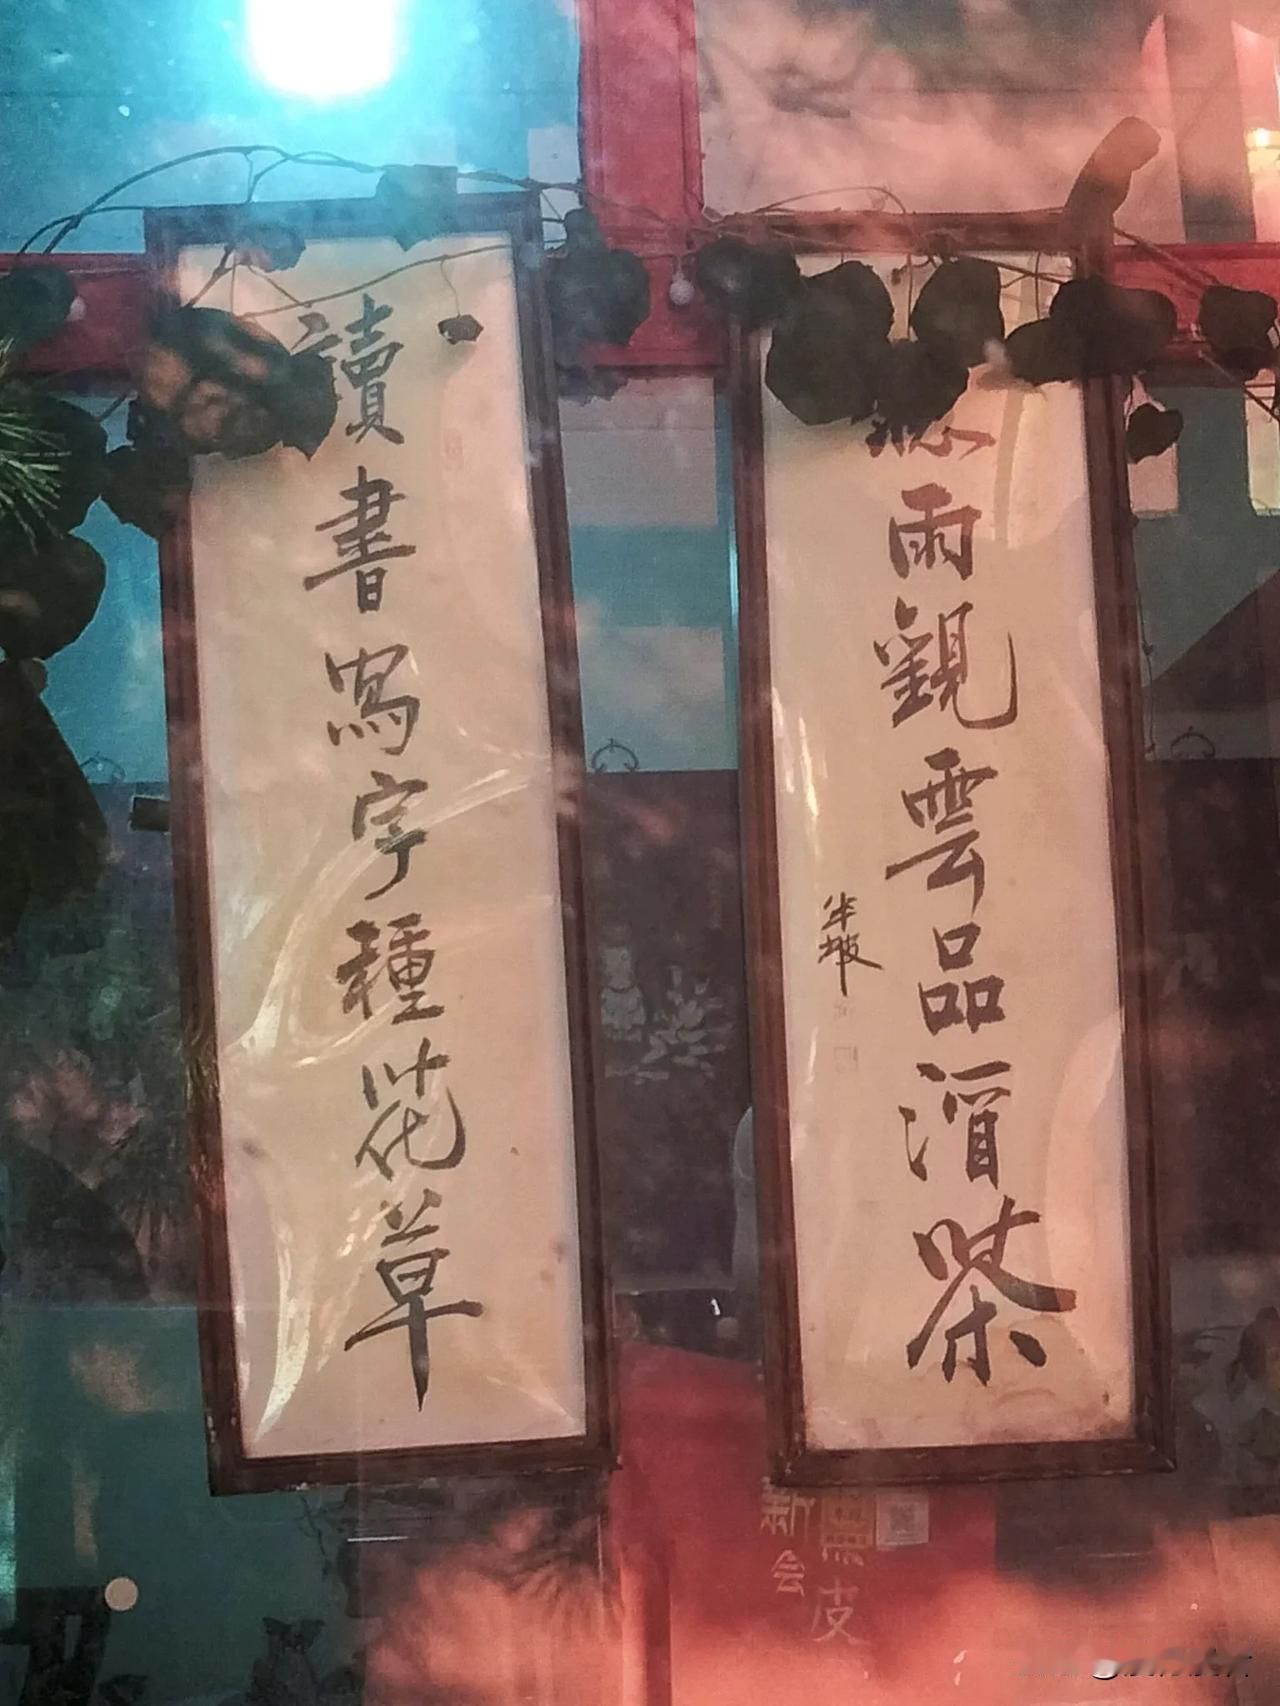 讀書寫字種花草
聽雨觀雲品酒茶
半坡
新会
皮